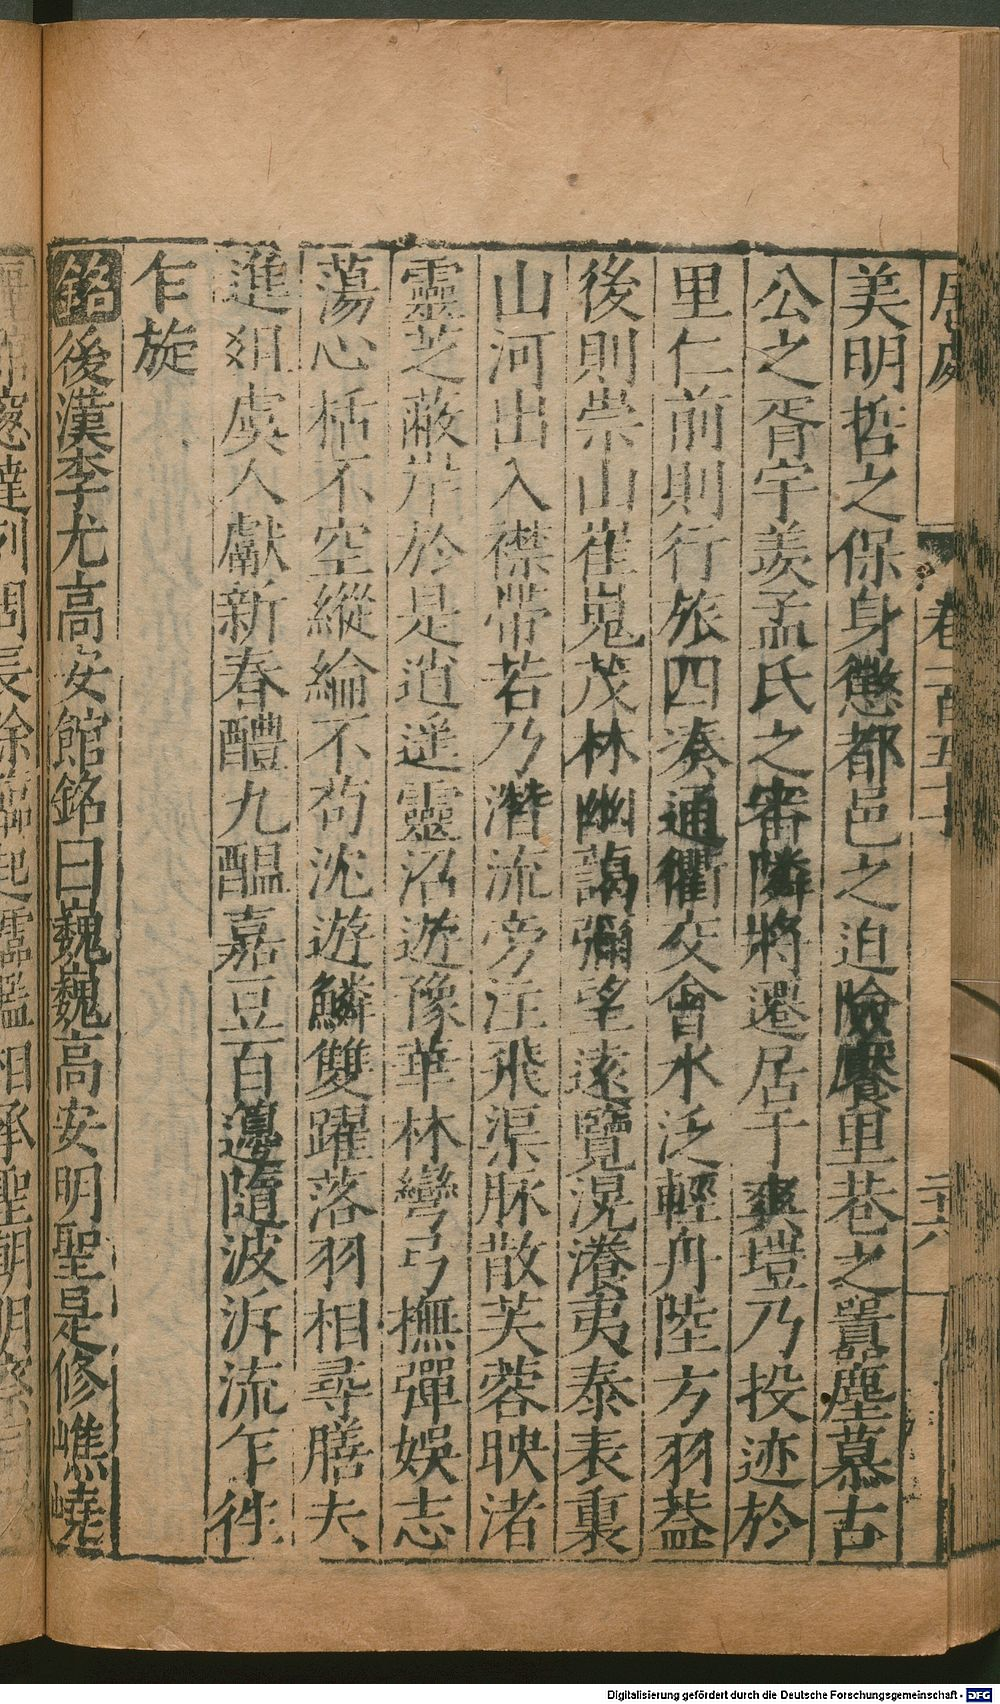 卷一百五十
二十六
美明哲之保身懲都邑之迫險𢟍里巷之囂塵慕古
公之胥宇羨孟氏之審隣將還居于爽塏乃投迹於
里仁前則行旅四湊通衢交會水泛輕舟陸方羽蓋
後則崇山崔嵬茂林幽藹彌望遠覽滉瀁夷泰表裏
山河出入襟帶若乃潛流旁注飛渠脉散芙蓉映渚
靈芝蔽岸於是逍遥靈沼遊豫華林彎弓撫彈娛志
蕩心栝不空縱綸不苟沈遊鱗雙躍落羽相尋膳夫
進俎虞人獻新春醴九醖嘉豆百籩隨波泝流乍往
乍旋
銘後漢李尤高安館銘曰巍巍高安明聖是修嶕嶢
Digitalisierung gefördert durch die Deutsche Forschungsgemeinschaft - DFG